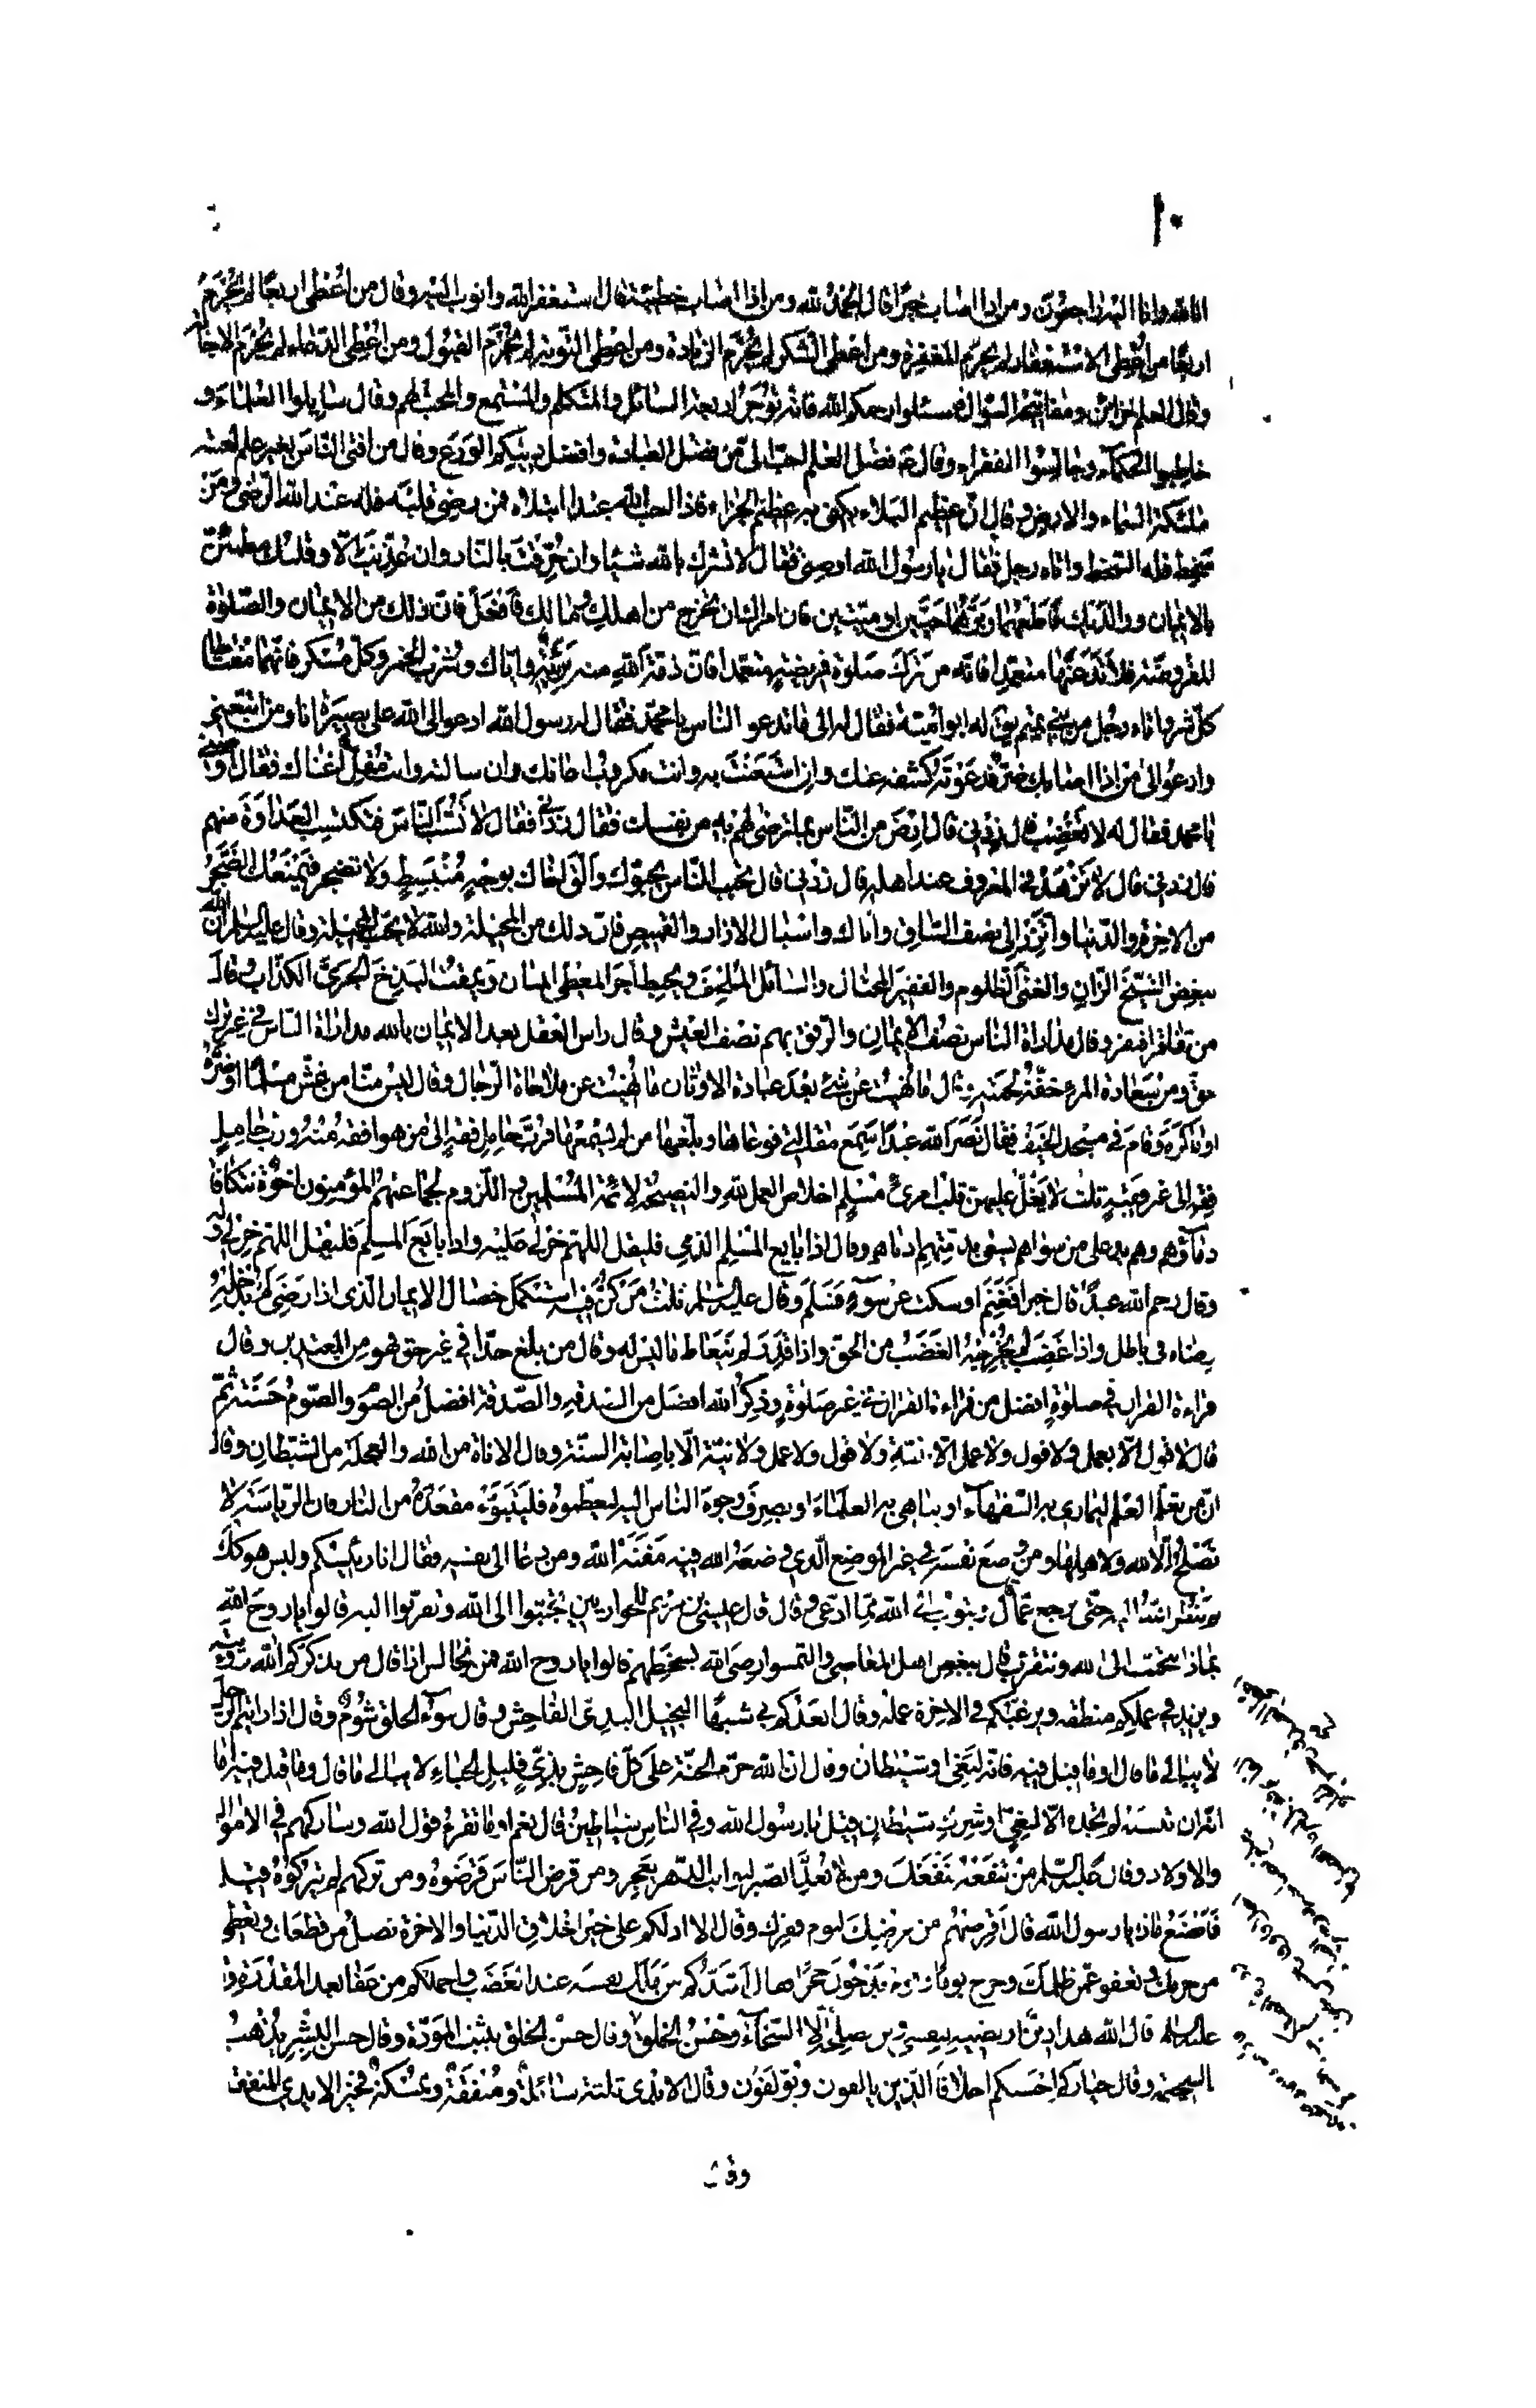 ١٠
انا لله وانا اليه راجعون ومن اذا اصاب خيرا قال الحمد لله ومن اذا اصاب خطيئة قال استغفر الله واتوب اليه وقال من اعطى اربعا لم يحرم
اربعا من اعطى الاستغفار لم يحرم المغفرة ومن اعطى الشكر لم يحرم الزيادة ومن اعطى التوبة لم يحرم القبول ومن اعطى الدعاء لم يحرم الاجابة
وقال العلم خزائن ومفاتيحه السؤال فسئلوا رحمكم الله فانه تؤجر اربعة السائل والمتكلم والمستمع والمحب لهم وقال سايلوا العلماء و
خاطبوا الحكماء وجالسوا الفقراء وقال فضل العلم احب الى من فضل العبادة وافضل دينكم الورع وقال من افتى الناس بغير علم لعنته
ملئكة السماء والارض وقال ان عظيم البلاء يكافى به عظيم الجزاء فاذا احب الله عبدا ابتلاه فمن رضى قلبه فله عند الله الرضى ومن
سخط فله السخط واتاه رجل فقال يا رسول الله اوصنى فقال لا تشرك بالله شيئا وان حرقت بالنار وان عذبت الا وقلبك مطمئن
بالايمان ووالديك فاطعهما وبرهما حيين او ميتين فان امراك ان تخرج من اهلك ومالك فافعل فان ذلك من الايمان والصلوة
المفروضة فلا تدعها متعمدا فانه من ترك صلوة فريضة متعمدا فان ذمة الله منه بريئة واياك وشرب الخمر وكل مسكر فانهما مفتاحا
كل شر واتاه رجل من بنى تميم يقال له ابو امية فقال له الى ما تدعو الناس يا محمد فقال له رسول الله ادعو الى الله على بصيرة انا ومن اتبعنى
وادعو الى من اذا اصابك ضر فدعوته كشفه عنك وان استعنت به وانت مكروب اعانك وان سالته وانت مقل اغناك فقال اوصنى
يا محمد فقال له لا تغضب قال زدنى قال ارض من الناس بما ترضى لهم به من نفسك فقال زدنى فقال لا تسب الناس فتكتسب العداوة منهم
قال زدنى قال لا تزهد فى المعروف عند اهله قال زدنى قال تحب الناس يحبوك والق اخاك بوجه منبسط ولا تضجر فيمنعك الضجر
من الاخرة والدنيا واتزر الى نصف الساق واياك واسبال الازار والقميص فان ذلك من المخيلة والله لا يحب المخيلة وقال عليه السلام ان الله
يبغض الشيخ الزان والغنى الظلوم والفقير المختال والسائل الملحف ويحبط اجر المعطى المنان ويمقت البذخ الجرى الكذاب وقال
من تفاقر افتقر وقال مداراة الناس نصف الايمان والرفق بهم نصف العيش وقال راس العقل بعد الايمان بالله مداراة الناس فى غير ترك
حق ومن سعادة المرء خفة لحيته وقال ما نهيت عن شئ بعد عبادة الاوثان ما نهيت عن ملاحاة الرجال وقال ليس منا من غش مسلما او ضره
او ماكره وقام فى مسجد الخيف فقال نضر الله عبدا سمع مقالتى فوعاها وبلغها من لم يسمعها فرب حامل فقه الى من هو افقه منه ورب حامل
فقه الى غير فقيه ثلث لا يغل عليهن قلب امرئ مسلم اخلاص العمل لله والنصيحة لائمة المسلمين واللزوم لجماعتهم المؤمنون اخوة تتكافا
دماؤهم وهم يد على من سواهم يسعى بذمتهم ادناهم وقال اذا بايع المسلم الذمى فليقل اللهم خر لى عليه واذا بايع المسلم فليقل اللهم خر لى وله
وقال رحم الله عبدا قال خيرا فغنم او سكت عن سوء فسلم وقال عليه السلم ثلث من كن فيه استكمل خصال الايمان الذى اذا رضى لم يدخله
رضاه فى باطل واذا غضب لم يخرجه الغضب من الحق واذا قدر لم يتعاط ما ليس له وقال من بلغ حدا فى غير حق فهو من المعتدين وقال
قراءة القران فى صلوة افضل من قراءة القران فى غير صلوة وذكر الله افضل من الصدقة والصدقة افضل من الصوم والصوم حسنة ثم
قال لا قول الا بعمل ولا قول ولا عمل الا بنية ولا قول ولا عمل ولا نية الا باصابة السنة وقال الاناة من الله والعجلة من الشيطان وقال
ان من تعلم العلم ليمارى به السفهاء او يباهى به العلماء او يصرف وجوه الناس اليه ليعظموه فليتبوء مقعده من النار فان الرياسة لا
تصلح الا لله ولاهلها ومن وضع نفسه فى غير الموضع الذى وضعه الله فيه مقته الله ومن دعا الى نفسه فقال انا رئيسكم وليس هو كك
لم ينظر الله اليه حتى يرجع عما قال ويتوب الى الله مما ادعى وقال قال عيسى بن مريم للحواريين تحببوا الى الله وتقربوا اليه قالوا يا روح الله
بماذا نتحبب الى الله ونتقرب قال ببغض اهل المعاصى والتمسوا رضى الله بسخطهم قالوا يا روح الله فمن نجالس اذا قال من يذكركم الله رؤيته
ويزيد فى عملكم منطقه ويرغبكم فى الاخرة عمله وقال ابعدكم بى شبها البخيل البذى الفاحش وقال سوء الخلق شوم وقال اذا رايتم الرجل
لا يبالى ما قال او ما قيل فيه فانه لبغى او شيطان وقال ان الله حرم الجنة على كل فاحش بذى قليل الحياء لا يبالى ما قال وما قيل فيه اما
انه ان تنسبه لم تجده الا لبغى او شرك شيطان قيل يا رسول الله وفى الناس شياطين قال نعم او ما تقرء قول الله وشاركهم فى الاموال
والاولاد وقال عليه السلم من تنفعه ينفعك ومن لا يعد الصبر لنوائب الدهر يعجز ومن قرض الناس قرضوه ومن تركهم لم يتركوه قيل
فاصنع ماذا يا رسول الله قال اقرضهم من عرضك ليوم فقرك وقال الا ادلكم على خير اخلاق الدنيا والاخرة تصل من قطعك وتعطى
من حرمك وتعفو عمن ظلمك وخرج يوما وقوم يدحون حجرا فقال اشدكم من ملك نفسه عند الغضب واحملكم من عفا بعد المقدرة وقال
عليه السلم قال الله هذا دين ارتضيه لنفسى ولن يصلحه الا السخاء وحسن الخلق وقال حسن الخلق يثبت المودة وقال حسن البشر يذهب
السخيمة وقال خياركم احسنكم اخلاقا الذين يالفون ويؤلفون وقال الايدى ثلثة سائلة ومنفقة وممسكة فخير الايدى المنفقة